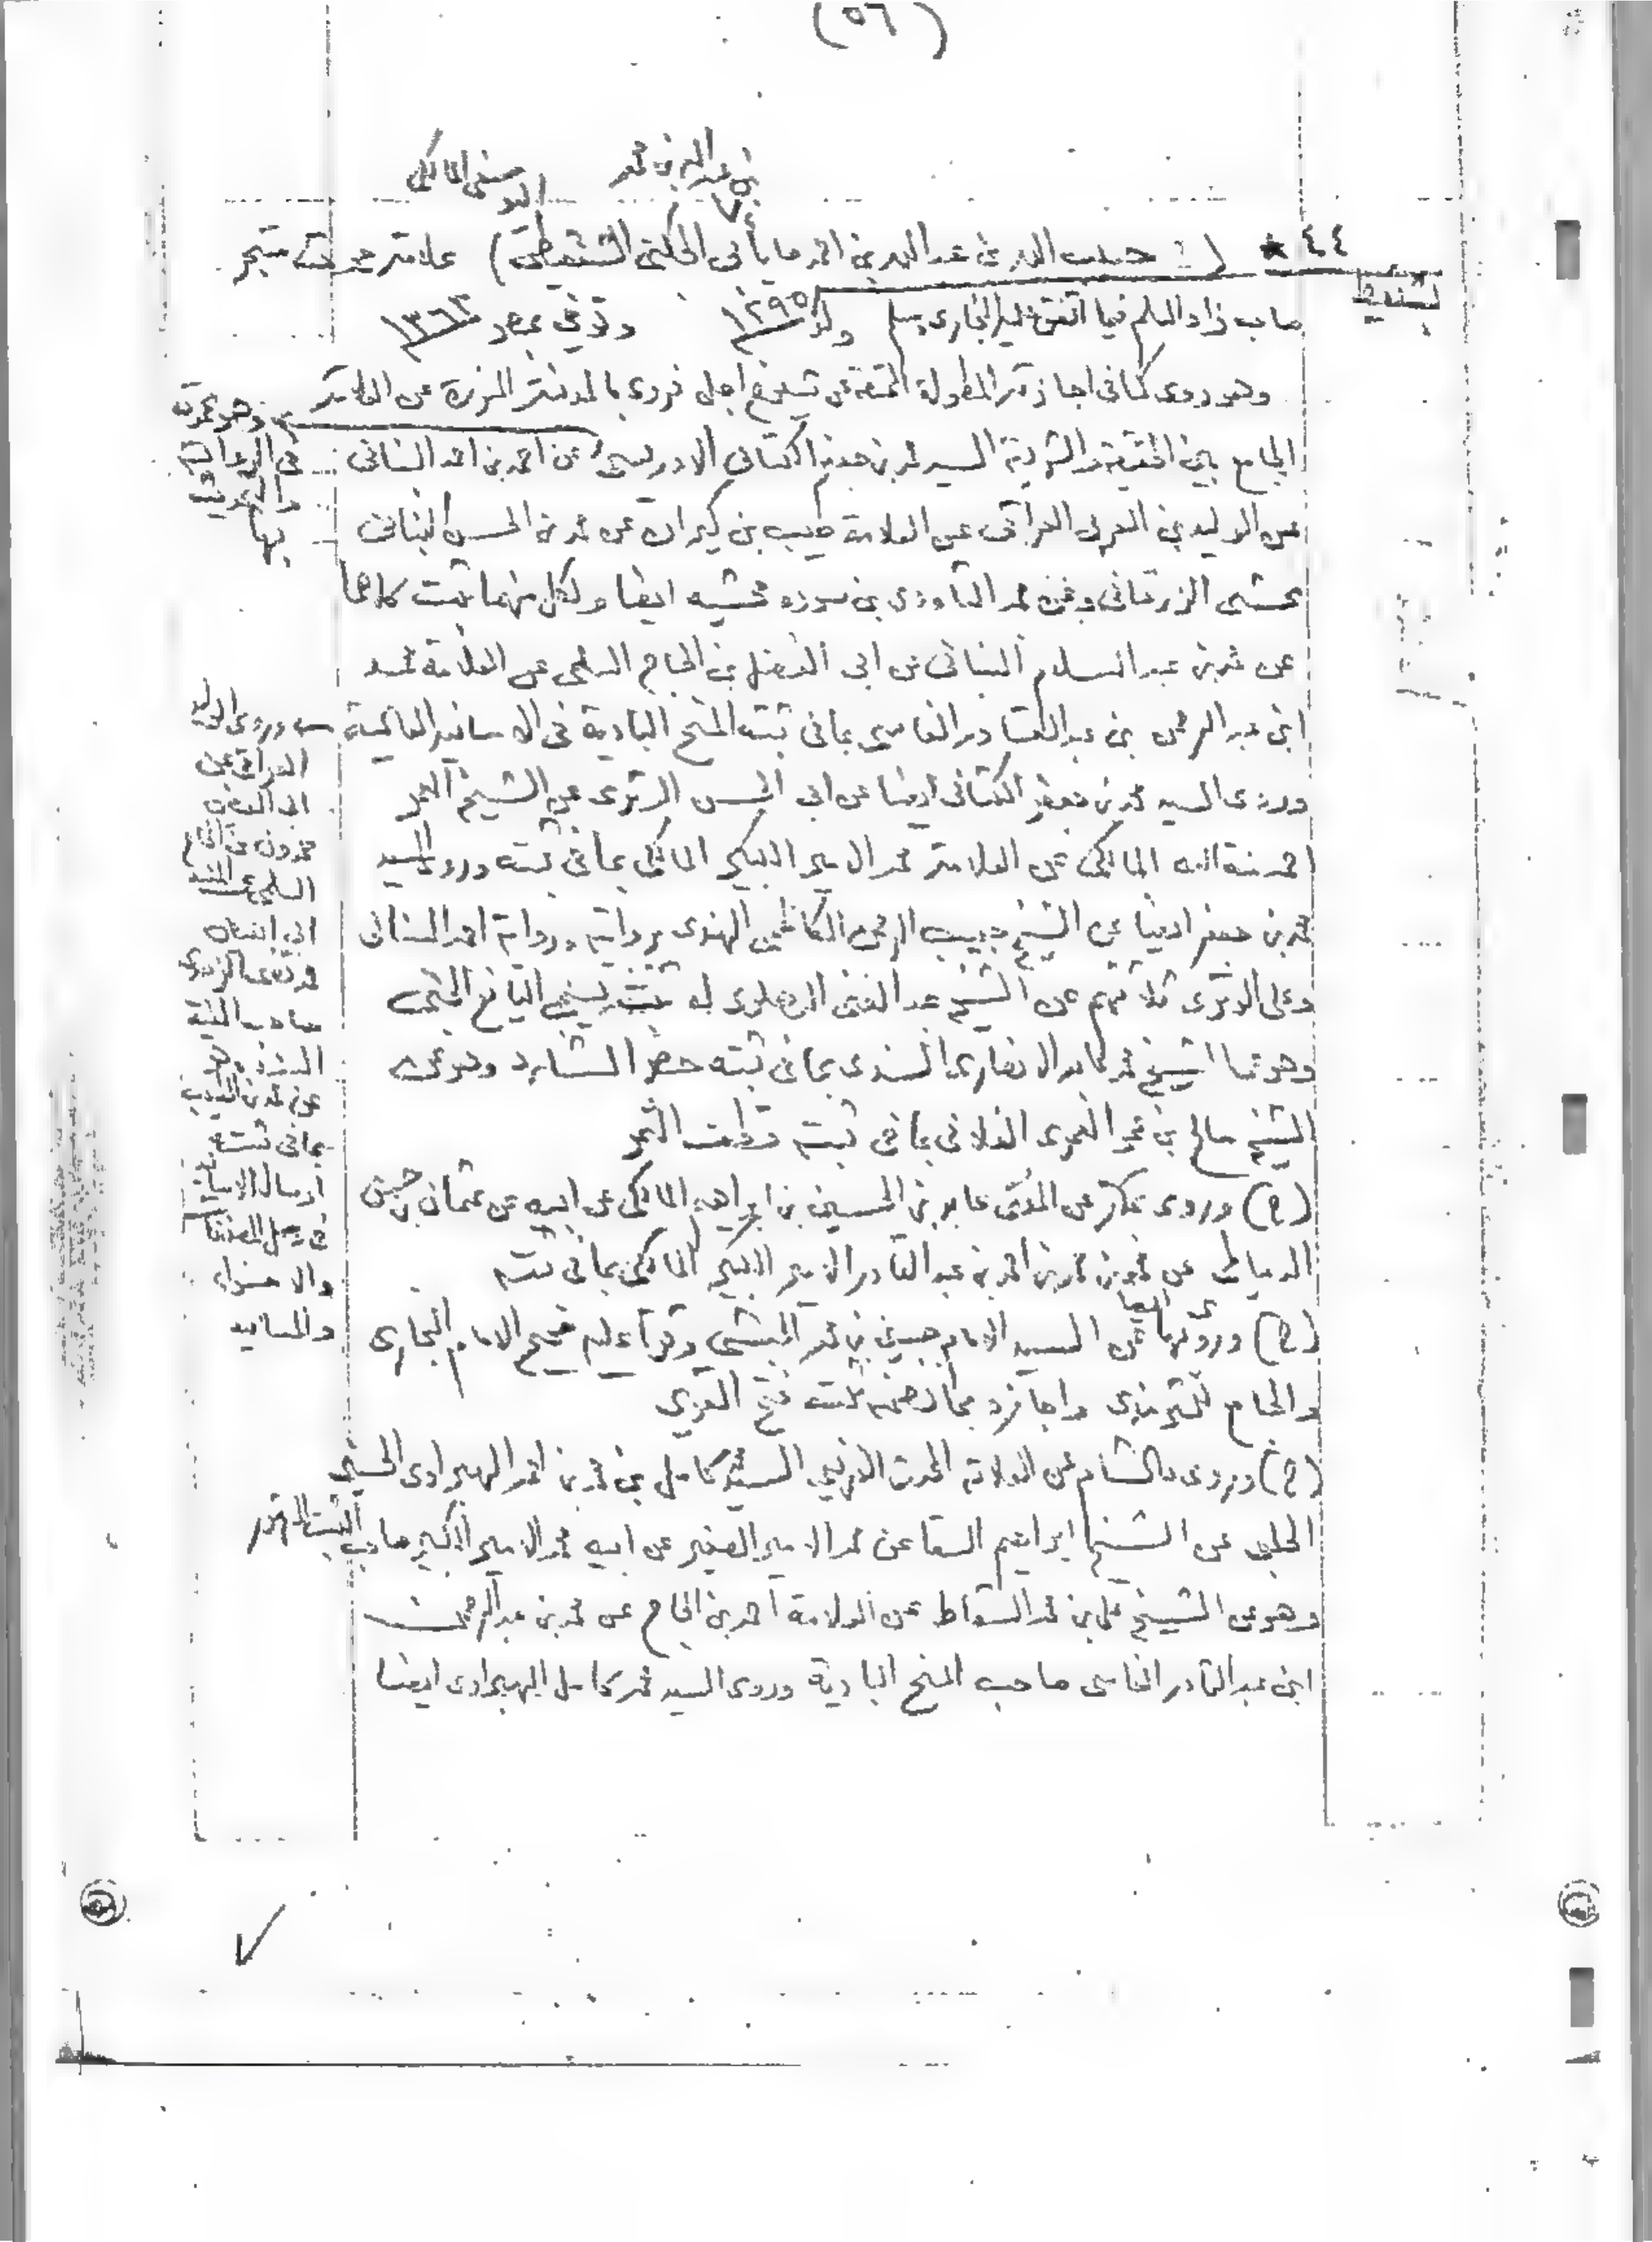 (٥٦)
بن عبد الله بن محمد
اليوسفي المالكي
٤٤ * (: حبيب الله بن عبد الله بن احمد مايأبى الجكني الشنقيطي) علامة محدث متبحر
شنقيط
صاحب زاد المسلم فيما اتفق عليه البخاري ومسلم ولد ١٢٩٥ وتوفي بمصر ١٣٦٣
وهو روى كما في اجازته المطولة عن شيوخ اجلة فروى بالمدينة المنورة عن العلامة
الجامع بين الحقيقة والشريعة السيد محمد بن جعفر الكتاني الادريسي عن احمد بن احمد البناني
عن الوليد بن العربي العراقي عن العلامة طيب بن كيران عن محمد بن الحسن البناني
محشي الزرقاني وعن محمد التاودي بن سوده محشيه ايضا ولكل منهما ثبت كلاهما
عن محمد بن عبد السلام البناني عن ابي الفضل بن الحاج السلمي عن العلامة محمد
ابن عبد الرحمن بن عبد القادر الفاسي بما في ثبته المنح البادية في الاسانيد العالية
وروى السيد محمد بن جعفر الكتاني ايضا عن ابي الحسن الوتري عن الشيخ المعمر
احمد منة الله المالكي عن العلامة محمد الامير الكبير المالكي بما في ثبته وروى السيد
محمد بن جعفر ايضا عن الشيخ حبيب الرحمن الكاظمي الهندي بروايته ورواية احمد البناني
وعلي الوتري ثلاثتهم عن الشيخ عبد الغني الدهلوي له ثبت يسمى اليانع الجني
وهو عن الشيخ محمد عابد الانصاري السندي بما في ثبته حصر الشارد وهو عن
الشيخ صالح بن محمد العمري الفلاني بما في ثبته قطف الثمر
(ح) وروى بمكة عن المفتي عابد بن الحسين بن ابراهيم المالكي عن ابيه عن عثمان بن حسن
الدمياطي عن محمد بن محمد بن احمد بن عبد القادر الامير الكبير المالكي بما في ثبته
(ح) وروى بها ايضا عن السيد الامام حسين بن محمد الحبشي وقرأ عليه صحيح الامام البخاري
والجامع للترمذي واجازه بما تضمنه ثبته فتح القوي
(ح) وروى بالشام عن العلامة المحدث السيد محمد كامل بن محمد بن احمد الهبراوي الحسيني
الحلبي عن الشيخ ابراهيم السقا عن محمد الامير الصغير عن ابيه محمد الامير الكبير صاحب الثبت المشهور
وهو عن الشيخ علي بن محمد السقاط عن العلامة احمد بن الحاج عن محمد بن عبد الرحمن
ابن عبد القادر الفاسي صاحب المنح البادية وروى السيد محمد كامل الهبراوي ايضا
وهو عمدته
في الرواية
بها
وروى الوليد
العراقي عن
ابي الفيض
حمدون بن الحاج
السلمي عن السيد
ابي الفيض
محمد مرتضى الزبيدي
بما في ثبته
والاحزاب
والمسانيد